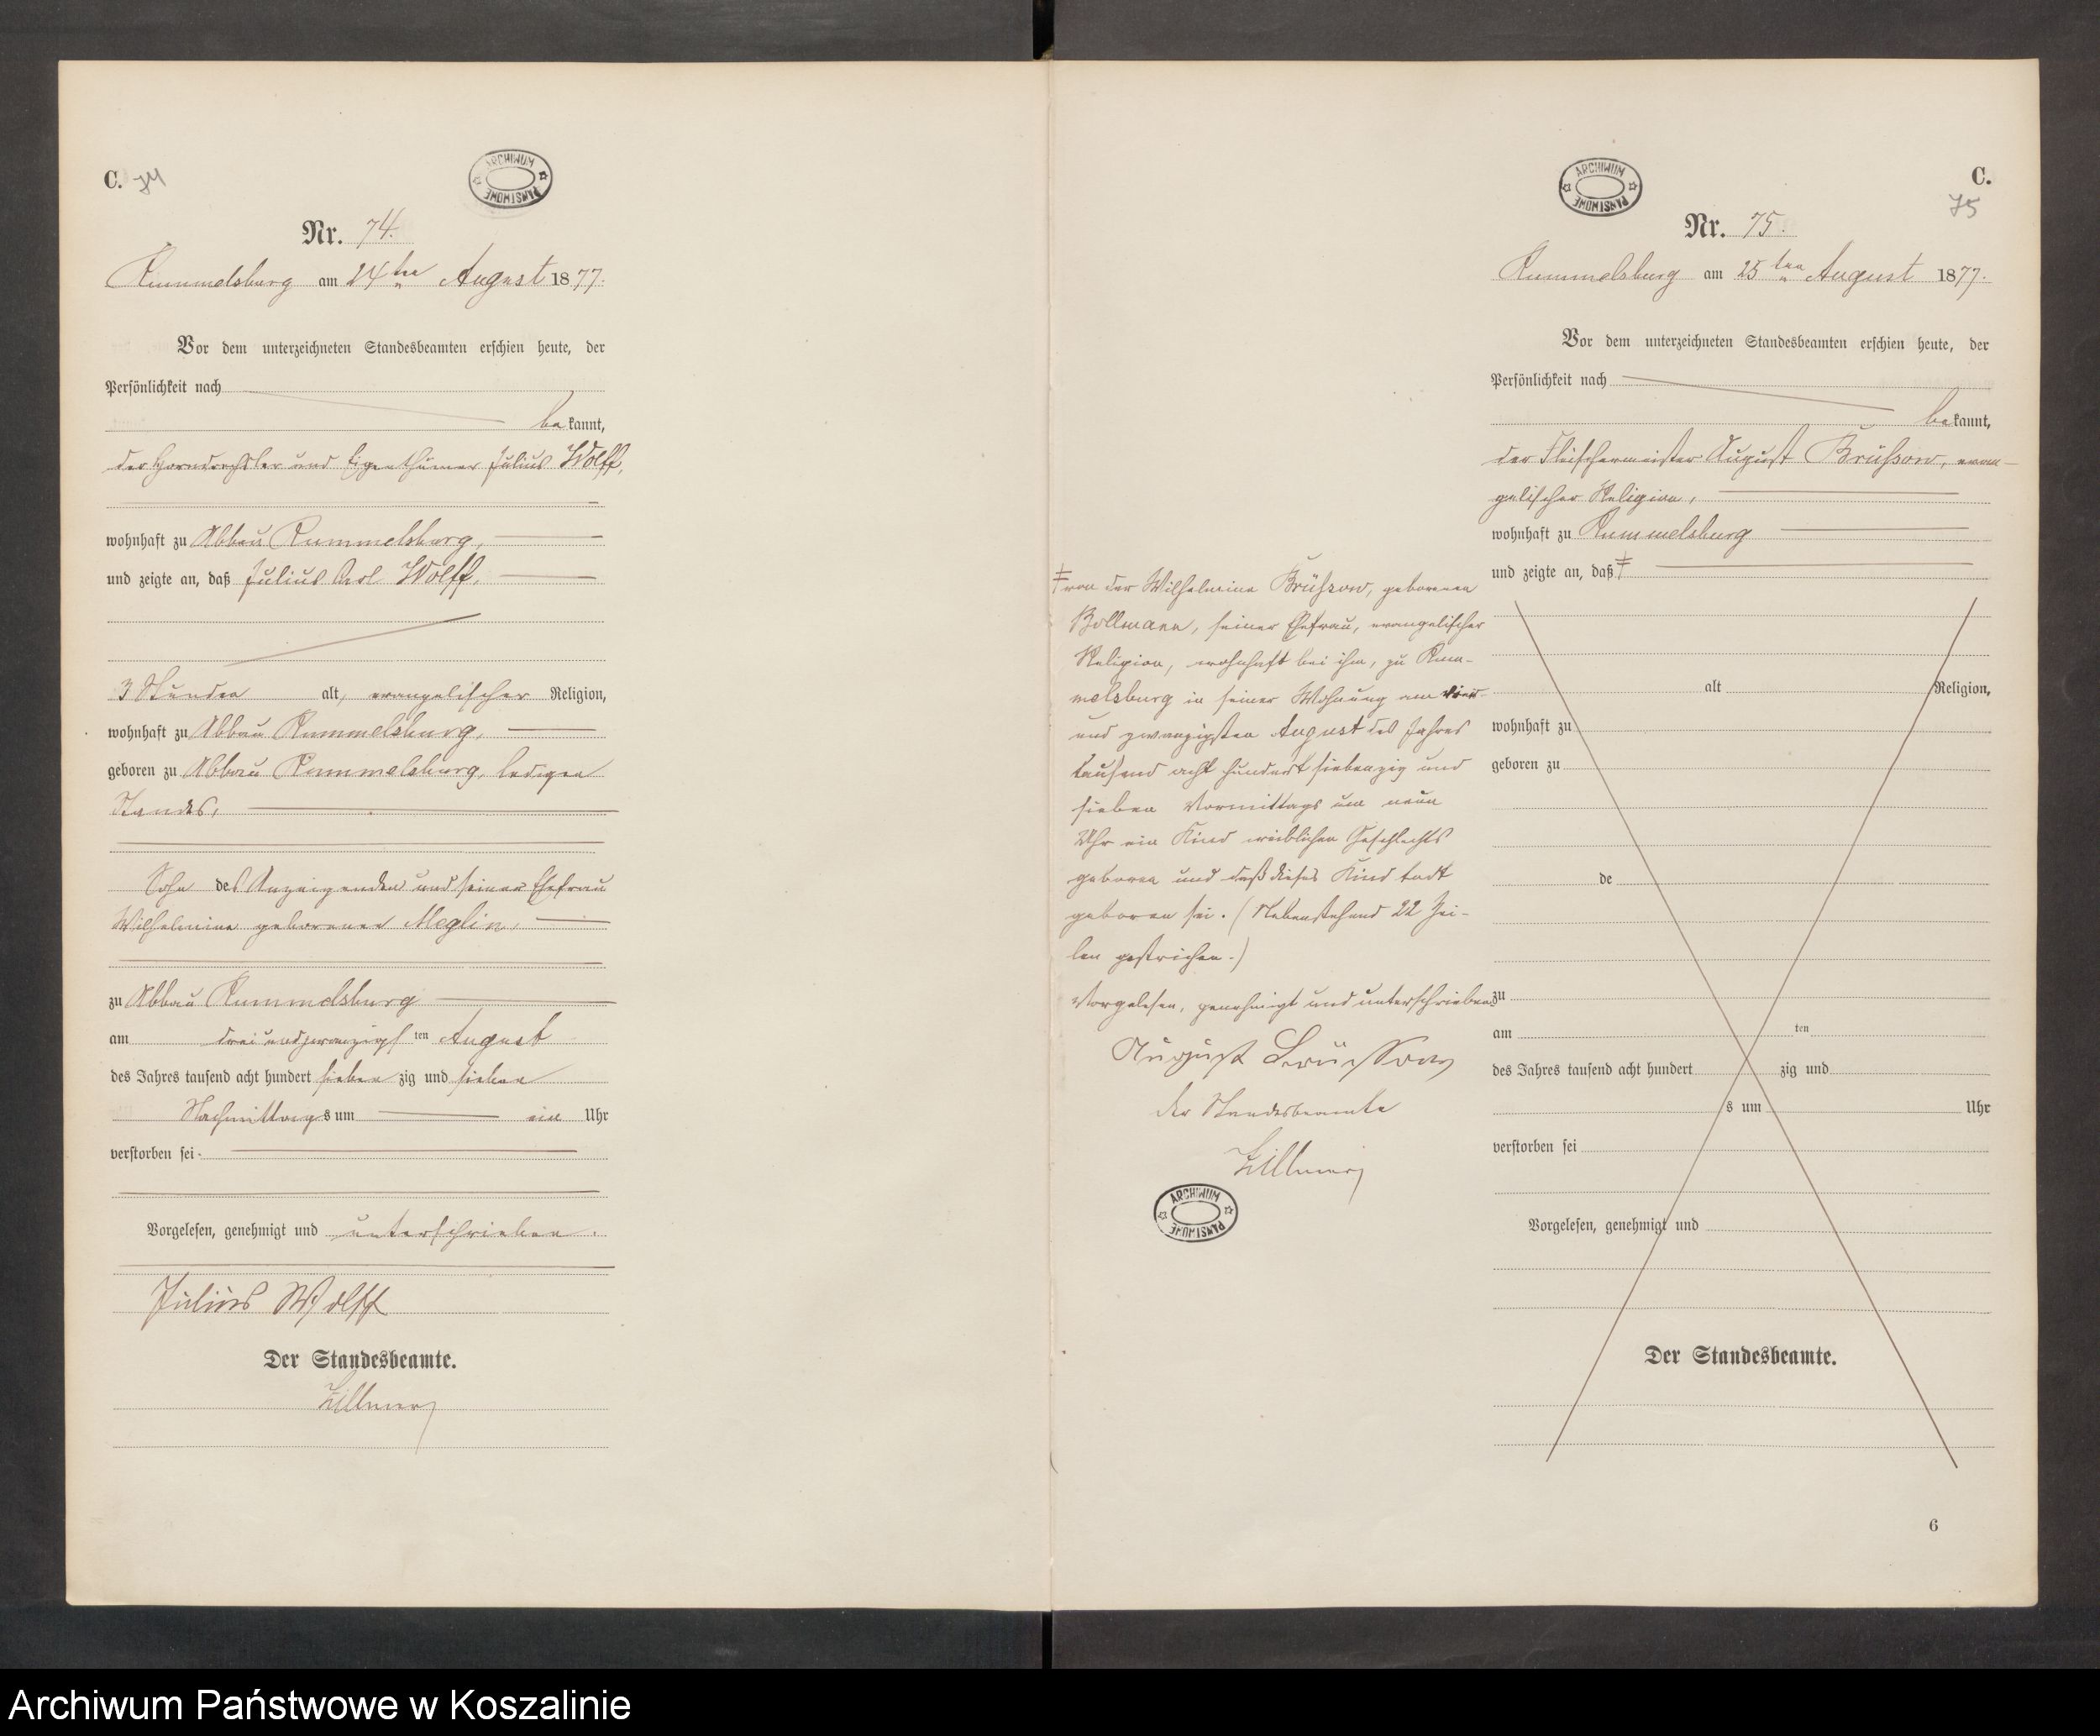 C. 74
ARCHIWUM PAŃSTWOWE
Nr. 74.
Rummelsburg am 24ten August 1877.
Vor dem unterzeichneten Standesbeamten erschien heute, der
Persönlichkeit nach
bekannt,
der Horndrechsler und Eigenthümer Julius Wolff,
wohnhaft zu Abbau Rummelsburg,
und zeigte an, daß Julius Carl Wolff,
3 Stunden alt, evangelischer Religion,
wohnhaft zu Abbau Rummelsburg,
geboren zu Abbau Rummelsburg, ledigen
Standes,
Sohn des Anzeigenden und seiner Ehefrau
Wilhelmine geborenen Meglin,
zu Abbau Rummelsburg
am drei und zwanzigsten August
des Jahres tausend acht hundert siebenzig und sieben
Nachmittags um ein Uhr
verstorben sei.
Vorgelesen, genehmigt und unterschrieben.
Julius Wolff
Der Standesbeamte.
Zillmer
C.
75
ARCHIWUM PAŃSTWOWE
Nr. 75.
Rummelsburg am 25ten August 1877.
Vor dem unterzeichneten Standesbeamten erschien heute, der
Persönlichkeit nach
bekannt,
der Fleischermeister August Brüssow, evan-
gelischer Religion,
wohnhaft zu Rummelsburg
und zeigte an, daß ‡
‡ von der Wilhelmine Brüssow, geborenen
Bollmann, seiner Ehefrau, evangelischer
Religion, wohnhaft bei ihm, zu Rum-
melsburg in seiner Wohnung am vier
und zwanzigsten August des Jahres
tausend acht hundert siebenzig und
sieben Vormittags um neun
Uhr ein Kind weiblichen Geschlechts
geboren und daß dieses Kind todt
geboren sei. (Nebenstehend 22 Zei-
len gestrichen.)
Vorgelesen, genehmigt und unterschrieben
August Brüssow
Der Standesbeamte
Zillmer
ARCHIWUM PAŃSTWOWE
alt Religion,
wohnhaft zu
geboren zu
de
zu
am ten
des Jahres tausend acht hundert zig und
s um Uhr
verstorben sei
Vorgelesen, genehmigt und
Der Standesbeamte.
6
Archiwum Państwowe w Koszalinie